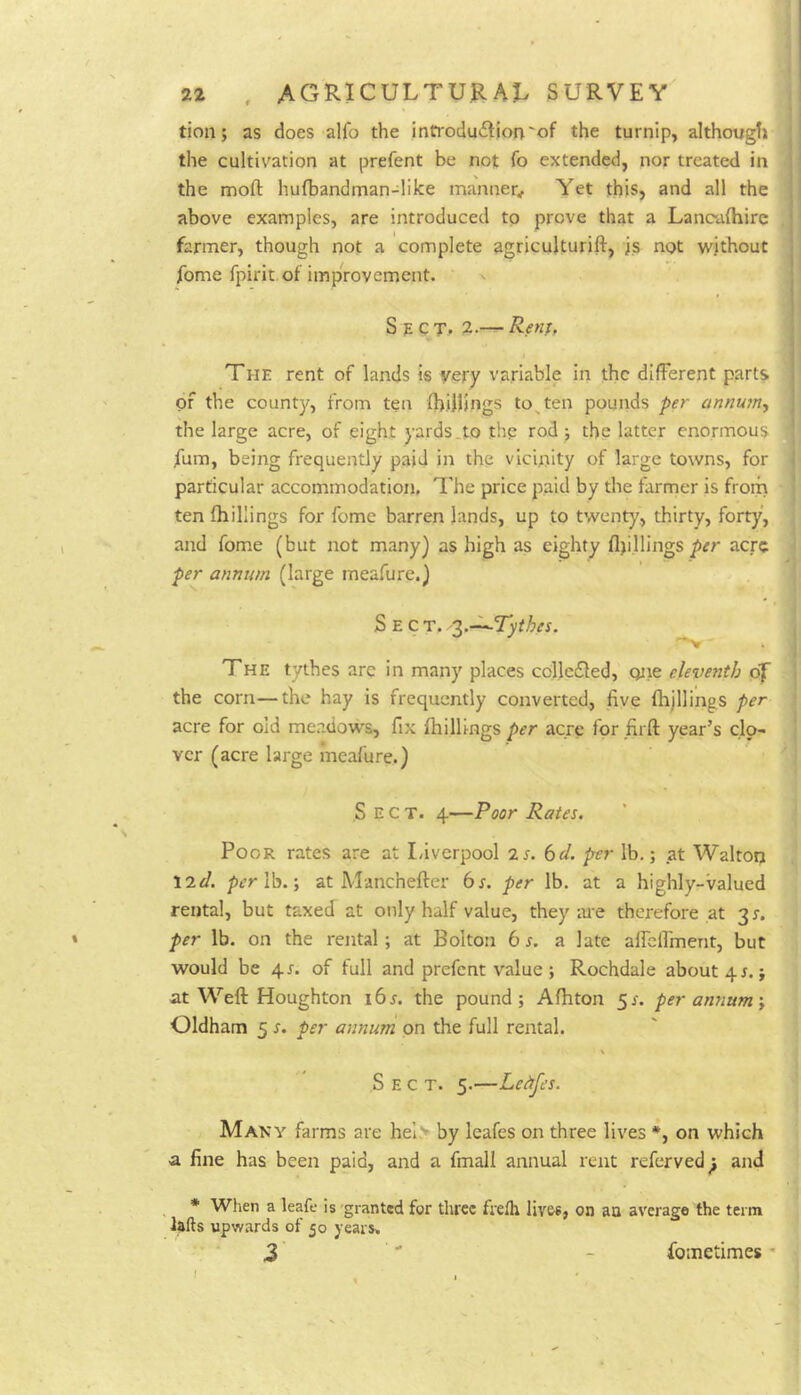 22 AGRICULTURAL SURVEY
tion; as does alſo the introduction of the turnip, although
the cultivation at preſent be not ſo extended, nor treated in
the moſt huſbandman-like manner. Yet this, and all the
above examples, are introduced to prove that a Lancaſhire
farmer, though not a complete agriculturiſt, is not without
ſome ſpirit of improvement.
SECT. 2.—Rent.
THE rent of lands is very variable in the different parts
of the county, from ten ſhillings to ten pounds per annum,
the large acre, of eight yards to the rod; the latter enormous
ſum, being frequently paid in the vicinity of large towns, for
particular accommodation. The price paid by the farmer is from
ten ſhillings for ſome barren lands, up to twenty, thirty, forty,
and ſome (but not many) as high as eighty ſhillings per acre
per annum (large meaſure.)
SECT. 3.—Tythes.
THE tythes are in many places collected, one eleventh of
the corn—the hay is frequently converted, five ſhillings per
acre for old meadows, ſix ſhillings per acre for firſt year's clo-
ver (acre large meaſure.)
SECT. 4—Poor Rates.
POOR rates are at Liverpool 2s. 6d. per lb.; at Walton
12d. per lb.; at Mancheſter 6s. per lb. at a highly-valued
rental, but taxed at only half value, they are therefore at 3s.
per lb. on the rental; at Bolton 6s. a late aſſeſſment, but
would be 4s. of full and preſent value; Rochdale about 4s.;
at Weſt Houghton 16s. the pound; Aſhton 5s. per annum;
Oldham 5s. per annum on the full rental.
SECT. 5.—Leaſes.
MANY farms are hel by leaſes on three lives *, on which
a fine has been paid, and a ſmall annual rent reſerved; and
* When a leaſe is granted for three freſh lives, on an average the term
laſts upwards of 50 years.
3 ſometimes